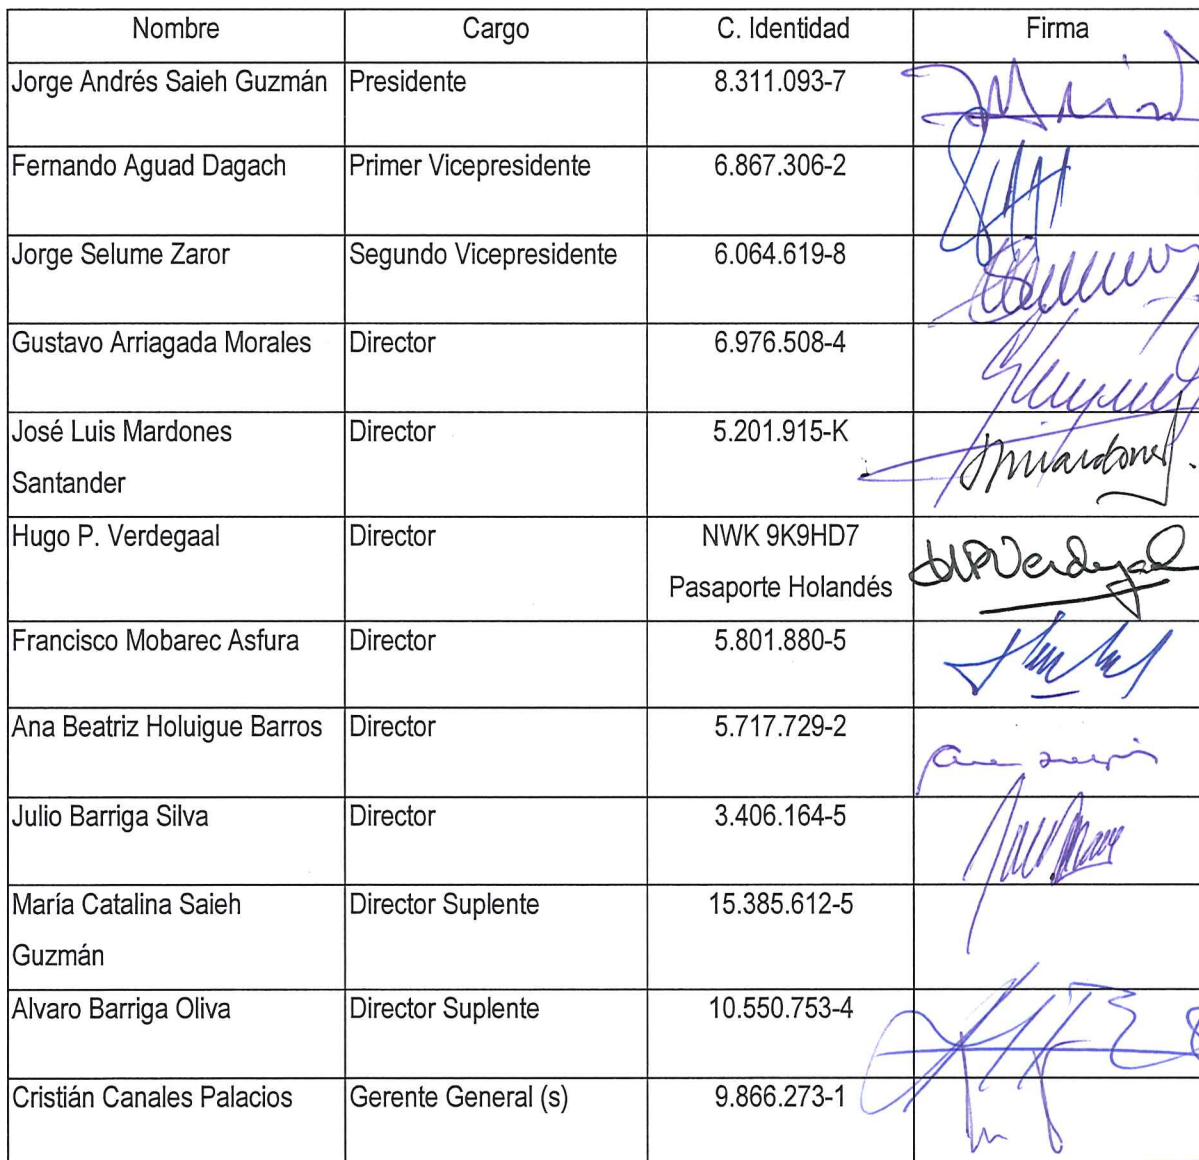 Nombre Cargo C. Identidad Firma
Jorge Andrés Saieh Guzmán Presidente 8.311.093-7
Fernando Aguad Dagach Primer Vicepresidente 6.867.306-2
Jorge Selume Zaror Segundo Vicepresidente 6.064.619-8
Gustavo Arriagada Morales Director 6.976.508-4
José Luis Mardones Director 5.201.915-K
Santander
Hugo P. Verdegaal Director NWK 9K9HD7
Pasaporte Holandés
Francisco Mobarec Asfura Director 5.801.880-5
Ana Beatriz Holuigue Barros Director 5.717.729-2
Julio Barriga Silva Director 3.406.164-5
María Catalina Saieh Director Suplente 15.385.612-5
Guzmán
Alvaro Barriga Oliva Director Suplente 10.550.753-4
Cristián Canales Palacios Gerente General (s) 9.866.273-1